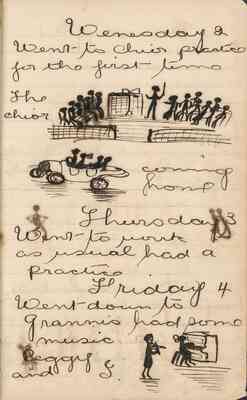 Wenesday 2
Went to chior practice
for the first time
The
chior
coming
home
Thursday 3
Went to work
as usual had a
practice
Friday 4
Went down to
Grannis had some
music
Peggy
and I.